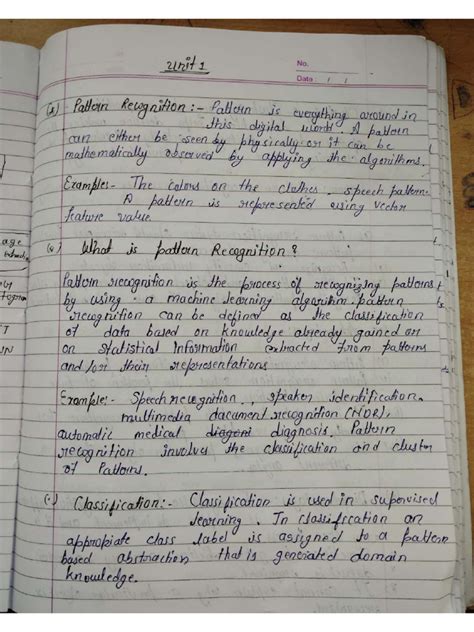 Unit 1
No.
Date : / /
Pattern Recognition :- Pattern is everything around in
this digital world. A pattern
can either be seen by physically or it can be
mathematically observed by applying the algorithms.
Example:- The colors on the clothes, speech pattern.
A pattern is represented using vector
feature value.
What is pattern Recognition?
Pattern recognition is the process of recognizing patterns
by using a machine learning algorithm. pattern
recognition can be defined as the classification
of data based on knowledge already gained or
on statistical Information extracted from patterns
and/or their representations
Example:- Speech recognition, speaker identification,
multimedia document recognition (MDR),
automatic medical diagnosis. Pattern
recognition involves the classification and cluster
of Patterns.
Classification:- Classification is used in supervised
learning. In classification an
appropiate class label is assigned to a pattern
based abstraction that is generated domain
knowledge.